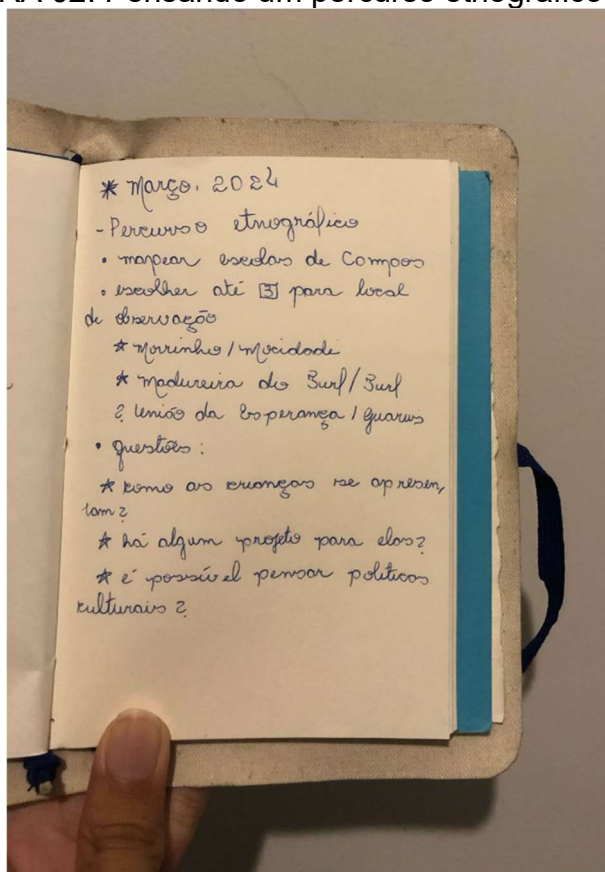 * Março. 2024
- Percurso etnográfico
• mapear escolas de Campos
• escolher até 3 para local
de observação
* Morrinho / Mocidade
* Madureira do Turf / Turf
? União da Esperança / Guarus
• questões:
* como as crianças se apresen,
tam?
* há algum projeto para elas?
* é possível pensar políticas
culturais?